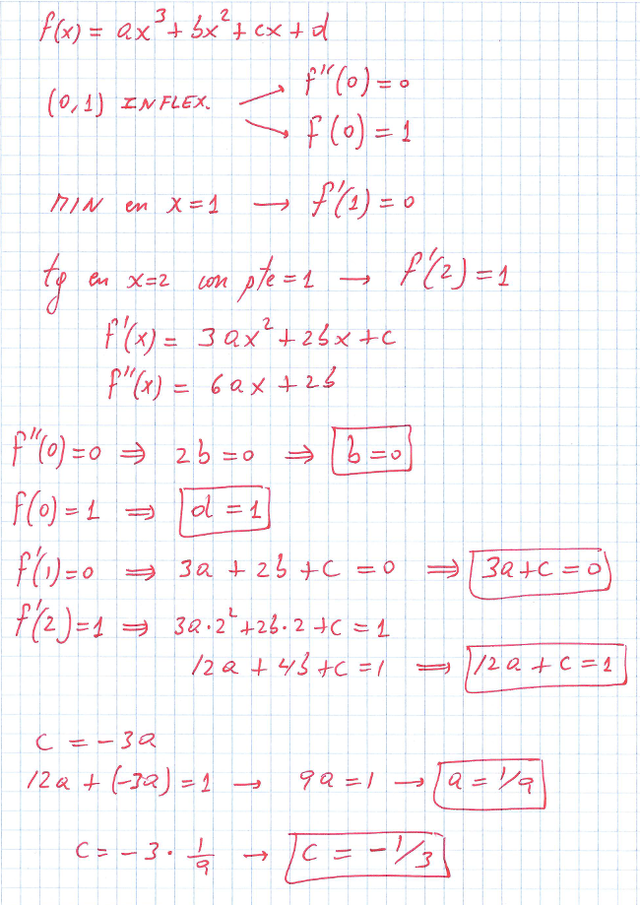 f(x) = ax³ + bx² + cx + d
f''(0) = 0
(0,1) INFLEX.
f(0) = 1
MIN en x=1 → f'(1) = 0
tg en x=2 con pte=1 → f'(2) = 1
f'(x) = 3ax² + 2bx + c
f''(x) = 6ax + 2b
f''(0) = 0 ⇒ 2b = 0 ⇒ b = 0
f(0) = 1 ⇒ d = 1
f'(1) = 0 ⇒ 3a + 2b + c = 0 ⇒ 3a + c = 0
f'(2) = 1 ⇒ 3a·2² + 2b·2 + c = 1
12a + 4b + c = 1 ⇒ 12a + c = 1
c = -3a
12a + (-3a) = 1 → 9a = 1 → a = 1/9
c = -3 · 1/9 → c = -1/3